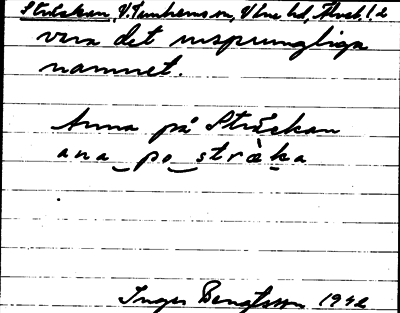 Sträckan, V. Tunhems sn, Väne hd, Älvsb. l. 2
vara det ursprungliga
namnet.
Anna på Sträckan
ana po sträka
Inger Bengtsson 1942